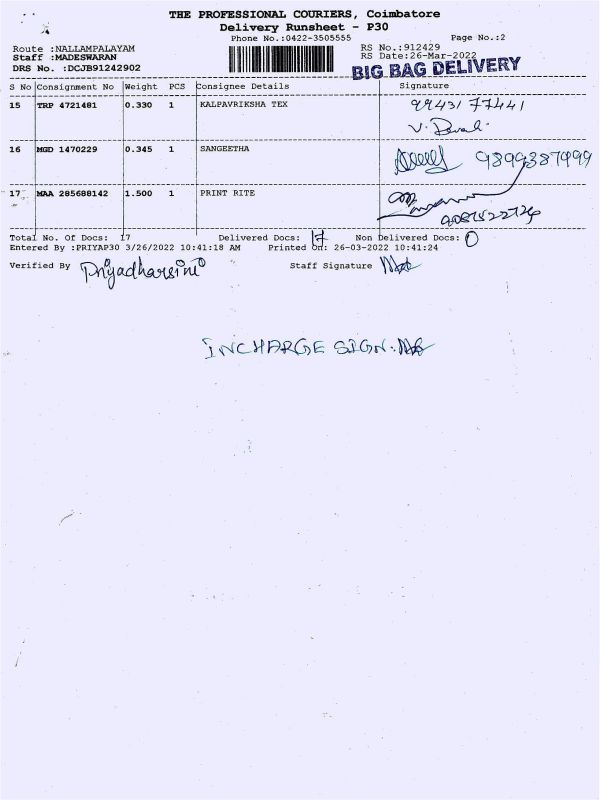 THE PROFESSIONAL COURIERS, Coimbatore
Delivery Runsheet - P30
Phone No.:0422-3505555 Page No.:2
Route :NALLAMPALAYAM RS No.:912429
Staff :MADESWARAN RS Date:26-Mar-2022
DRS No. :DCJB91242902 BIG BAG DELIVERY
S No Consignment No Weight PCS Consignee Details Signature
15 TRP 4721481 0.330 1 KALPAVRIKSHA TEX 99431 77441
16 MGD 1470229 0.345 1 SANGEETHA 9899387999
17 MAA 285688142 1.500 1 PRINT RITE
Total No. Of Docs: 17 Delivered Docs: 17 Non Delivered Docs: 0
Entered By :PRIYAP30 3/26/2022 10:41:18 AM Printed On: 26-03-2022 10:41:24
Verified By Priyadharsini Staff Signature
INCHARGE SIGN: